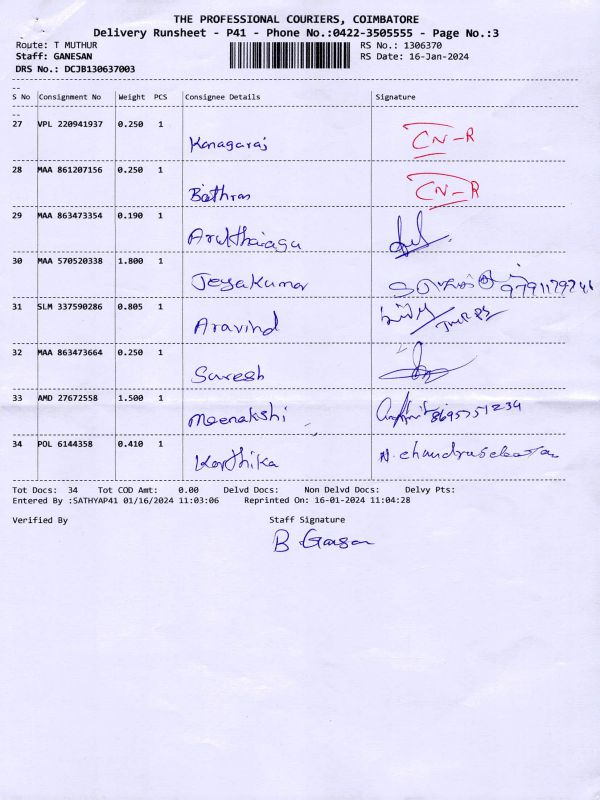 THE PROFESSIONAL COURIERS, COIMBATORE
Delivery Runsheet - P41 - Phone No.:0422-3505555 - Page No.:3
Route: T MUTHUR RS No.: 1306370
Staff: GANESAN RS Date: 16-Jan-2024
DRS No.: DCJB130637003
--
S No Consignment No Weight PCS Consignee Details Signature
--
27 VPL 220941937 0.250 1 Kanagaraj CN-R
28 MAA 861207156 0.250 1 CN-R
29 MAA 863473354 0.190 1
30 MAA 570520338 1.800 1 Jeyakumar
31 SLM 337590286 0.805 1 Aravind
32 MAA 863473664 0.250 1 Suresh
33 AMD 27672558 1.500 1 Meenakshi 8695751234
34 POL 6144358 0.410 1 Karthika N. Chandrasekaran
Tot Docs: 34 Tot COD Amt: 0.00 Delvd Docs: Non Delvd Docs: Delvy Pts:
Entered By :SATHYAP41 01/16/2024 11:03:06 Reprinted On: 16-01-2024 11:04:28
Verified By Staff Signature
B